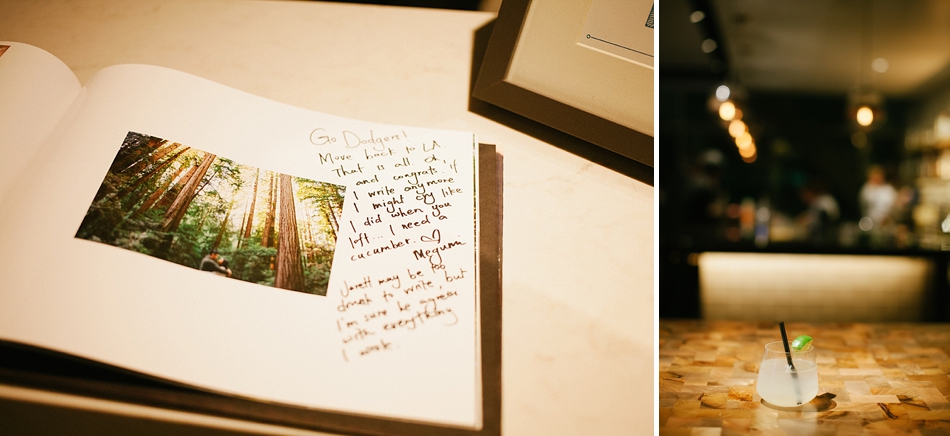 Go Dodgers!
Move back to LA
That is all oh,
and congrats, if
I write anymore
I might cry like
I did when you
left... I need a
cucumber. ♡
Megumi
Jarett may be too
drunk to write, but
I'm sure he agrees
with everything
I wrote.